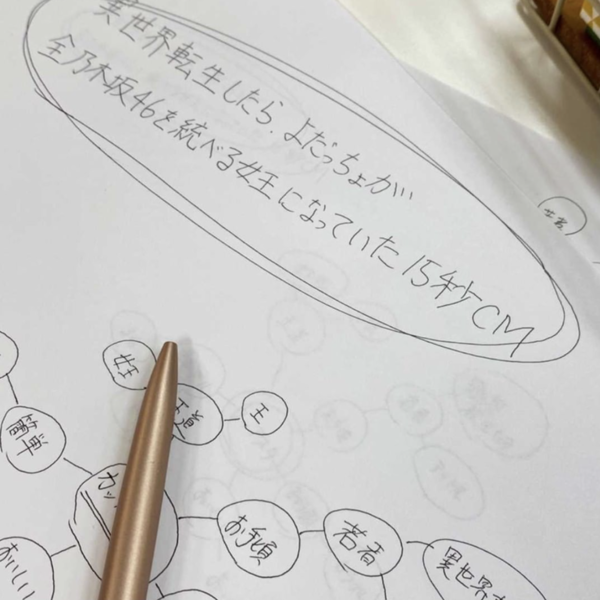 異世界転生したら、よだっちょが
全乃木坂46を統べる女王になっていた15秒CM
女王
王道
王
簡単
カッ
お手頃
若者
異世界
おいしい